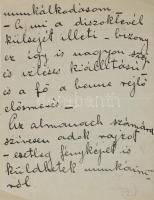 munkálkodásom
- h, mi a diszoklevél
külsejét illeti - bizony
ez így is nagyon szép
és izléses kiállitásu
és a fő a benne rejlő
elösmerés -
Az almanach számára
szivesen adok rajzot
- esetleg fényképet is
küldhetek munkáim-
ról